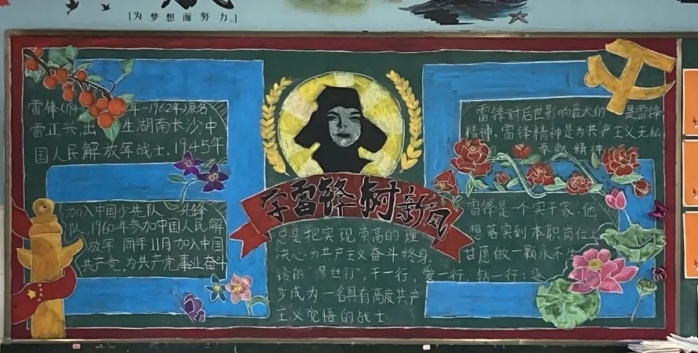 为梦想而努力。
雷锋(19 年—1962年)原名
雷正兴,出生湖南长沙,中
国人民解放军战士.1945年
加入中国少年队 先锋
队、1960年参加中国人民解
放军 同年11月加入中国
共产党,为共产党事业奋斗
学雷锋树新风
总是把实现崇高的理
决心,为共产主义奋斗终身,
干一行,爱一行,钻一行;
步成为一名具有高度共产
主义觉悟的战士
雷锋对后世影响最大的 是雷锋
精神.雷锋精神是为共产主义无私
奉献 精神
雷锋是一个实干家.他
想落实到本职岗位上
甘愿做一颗永不生